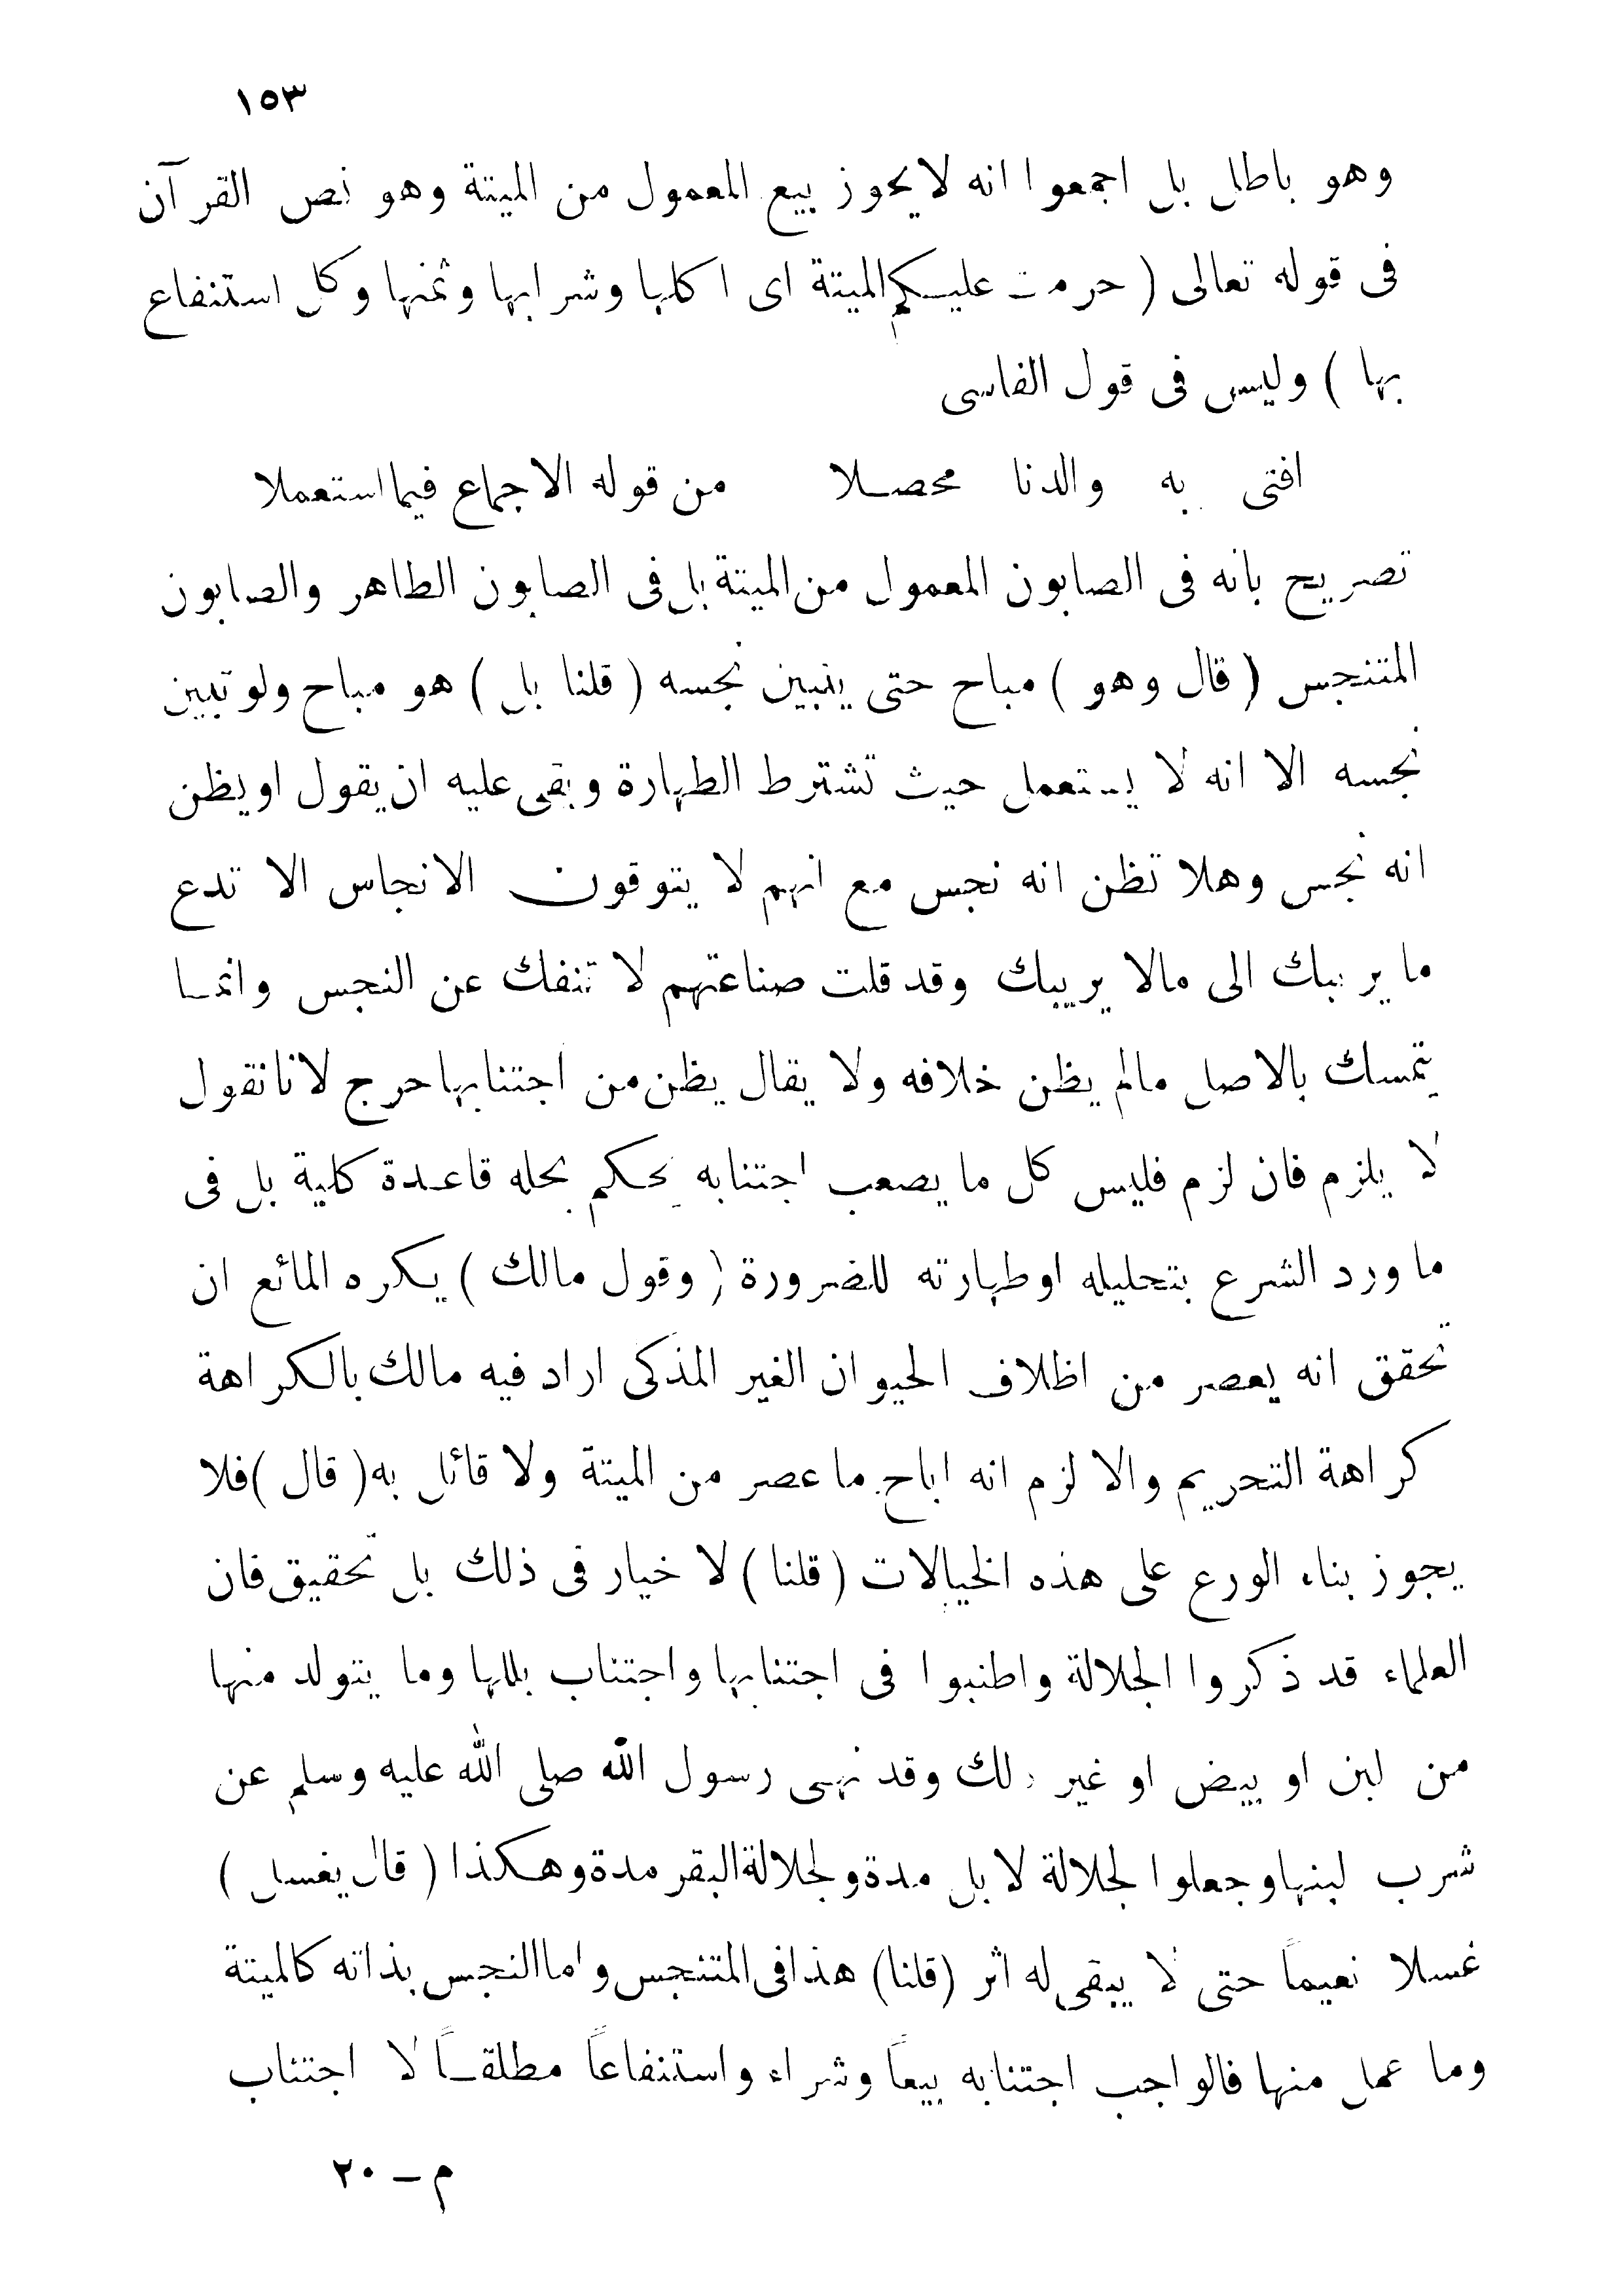 ١٥٣
وهو باطل بل اجمعوا انه لا يجوز بيع المعمول من الميتة وهو نص القرآن
فى قوله تعالى ( حرمت عليكم الميتة اى اكلها وشرابها وثمنها وكل استنفاع
بها ) وليس فى قول الفاسى
افتى به والدنا محصلا من قوله الاجماع فيما استعملا
تصريح بانه فى الصابون المعمول من الميتة بل فى الصابون الطاهر والصابون
المتنجس ( قال وهو ) مباح حتى يتبين نجسه ( قلنا بل ) هو مباح ولو تبين
نجسه الا انه لا يستعمل حيث تشترط الطهارة وبقى عليه ان يقول او يظن
انه نجس وهلا تظن انه نجس مع انهم لا يتوقون الانجاس الا تدع
ما يريبك الى مالا يريبك وقد قلت صناعتهم لا تنفك عن النجس وانما
يتمسك بالاصل مالم يظن خلافه ولا يقال يظن من اجتنابها حرج لانا نقول
لا يلزم فان لزم فليس كل ما يصعب اجتنابه يحكم بحله قاعدة كلية بل فى
ما ورد الشرع بتحليله او طهارته للضرورة ( وقول مالك ) يكره المائع ان
تحقق انه يعصر من اظلاف الحيوان الغير المذكى اراد فيه مالك بالكراهة
كراهة التحريم والا لزم انه اباح ما عصر من الميتة ولا قائل به ( قال ) فلا
يجوز بناء الورع على هذه الخيالات ( قلنا ) لا خيار فى ذلك بل تحقيق فان
العلماء قد ذكروا الجلالة واطنبوا فى اجتنابها واجتناب بللها وما يتولد منها
من لبن او بيض او غير ذلك وقد نهى رسول الله صلى الله عليه وسلم عن
شرب لبنها وجعلوا لجلالة لا بل مدة ولجلالة البقر مدة وهكذا ( قال يغسل )
غسلا نعيماً حتى لا يبقى له اثر ( قلنا ) هذا فى المتنجس واما النجس بذاته كالميتة
وما عمل منها فالواجب اجتنابه بيعاً وشراء واستنفاعاً مطلقاً لا اجتناب
م ــ ٢٠